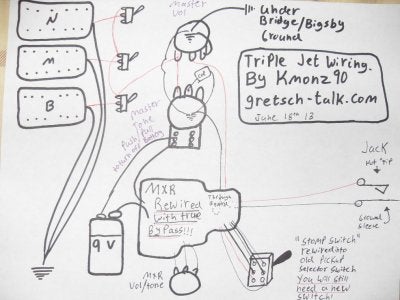 Master
Vol
Under
Bridge/Bigsby
Ground
N
M
B
Triple Jet Wiring.
By Kmonz90
gretsch-talk.com
June 15th 13
Master
Tone
Push/Pull
to turn off battery
MXR
Rewired
with true
Bypass!!!
9V
MXR
Vol/tone
Jack
Hot "tip"
Ground
sleeve
"Stomp Switch"
rewired into
old pickup
selector switch
You will still
need a new
switch!